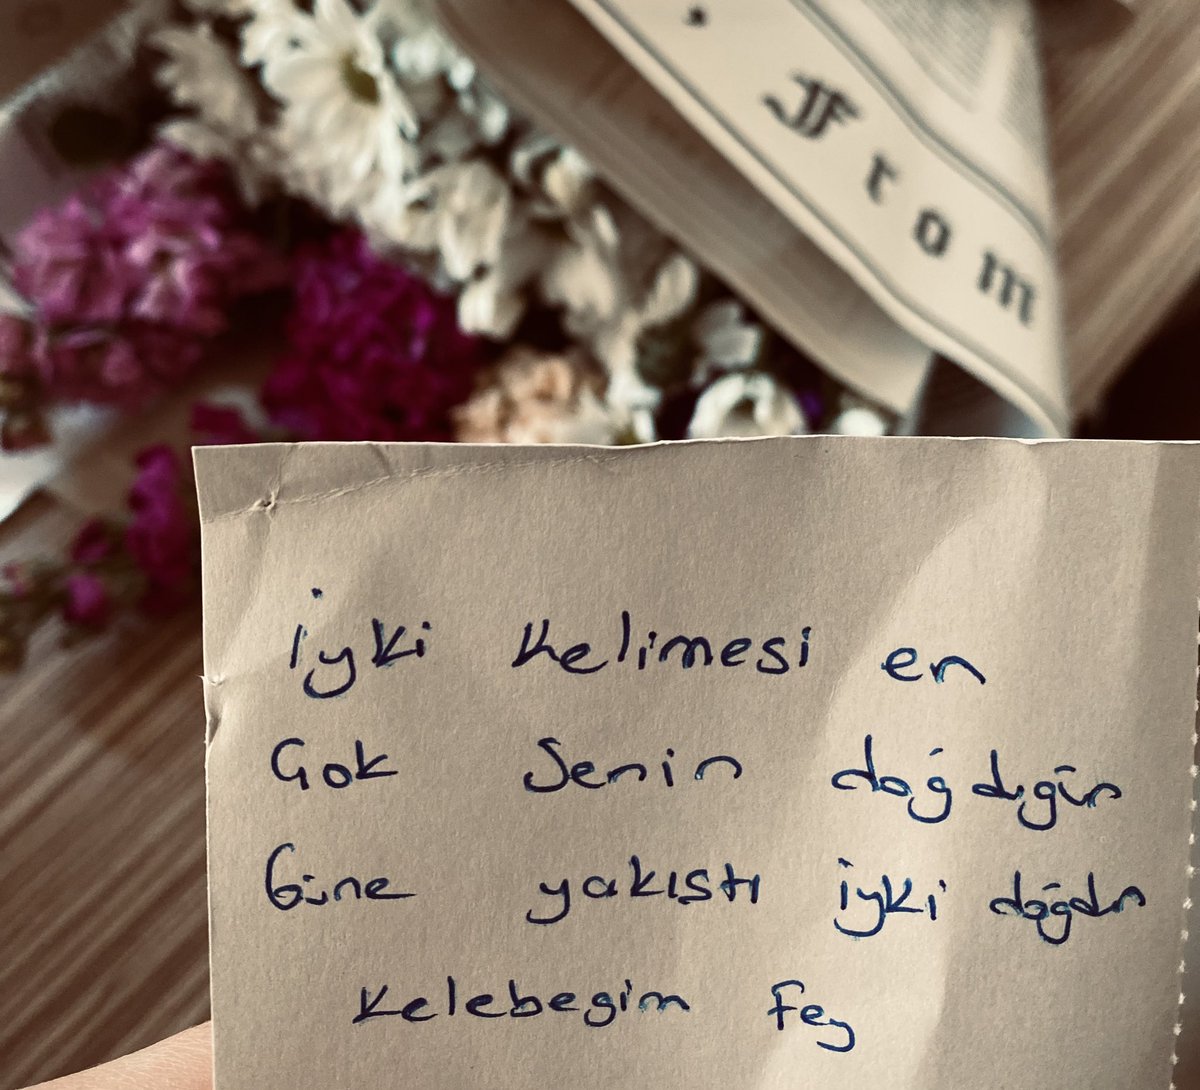 From
İyki kelimesi en
Çok Senin doğdığın
Güne yakıştı iyki doğdın
Kelebegim Fey